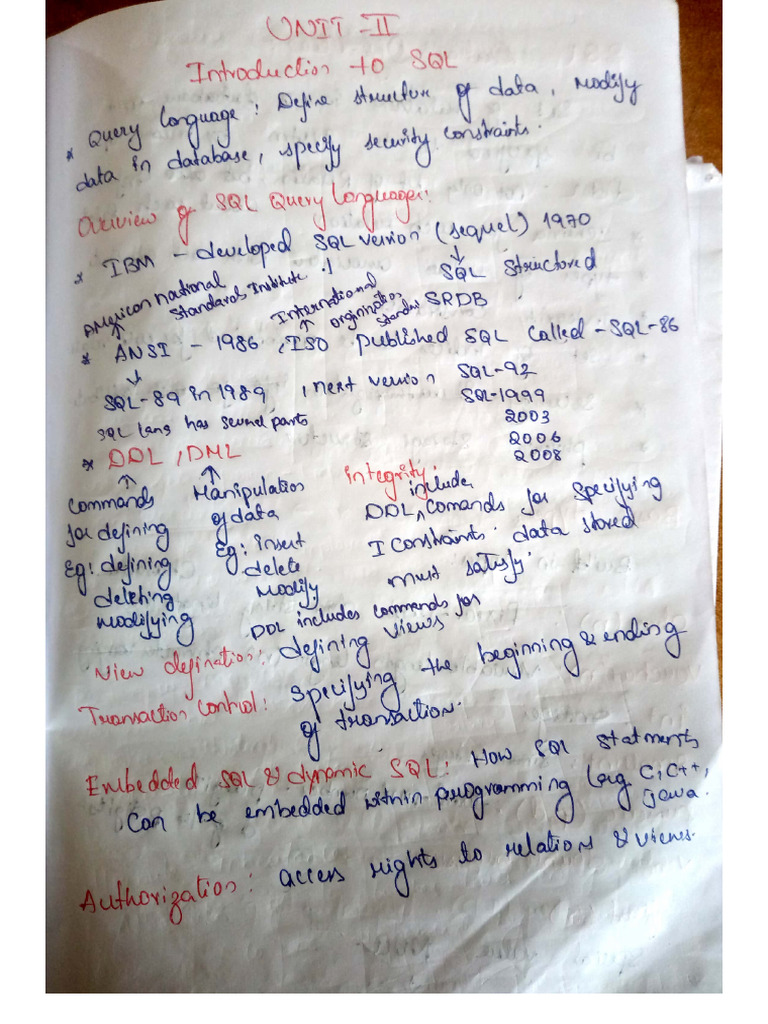 UNIT-II
Introduction to SQL
* Query Language : Define structure of data, modify
data in database, specify security constraints.
Overiview of SQL Query Language:
* IBM - developed SQL version (sequel) 1970
SQL Structured
American national
Standards Institute
International
Orginination
Standar
SRDB
* ANSI - 1986, ISO published SQL called - SQL-86
SQL-89 in 1989, next version SQL-92
SQL-1999
2003
2006
2008
SQL lang has several parts
* DDL, DML
Commands
for defining
Eg: defining
deleting
modifying
Manipulation
of data
Eg: insert
delete
Modify
Integrity:
include
DDL, Comands for specifying
I Constraints. data stored
must satisfy.
DDL includes commands for
View defination: defining views
Transaction Control: Specifying the beginning & ending
of transaction.
Embedded SQL & dynamic SQL: How SQL statments
Can be embedded within programming lang C, C++,
Java.
Authorization: access rights to relations & views.